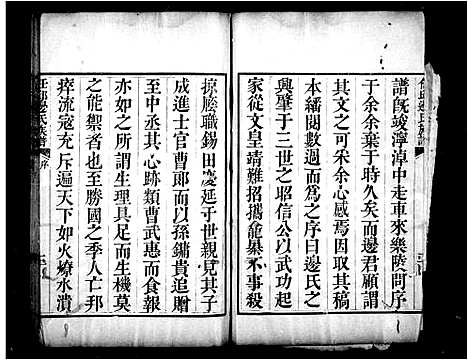 譜旣竣濘淖中走車來樂陵問序
于余余葉于時久矣而邊君顧謂
其文之可采余心感焉因取其稿
本繙閱數過而爲之序曰邊氏之
興肇于三世之昭信公以武功起
家從文皇靖難招攜龕暴不事殺
掠勝職錫田慶延于世親見其子
成進士官曹郎而以孫鏞貴追贈
至中丞其心跡類曹武惠而享報
亦如之所謂生理具足而生機莫
之能禦者也至勝國之季人亡邦
瘁流寇充斥遍天下如火燎水潰
任邱邊氏族譜
序